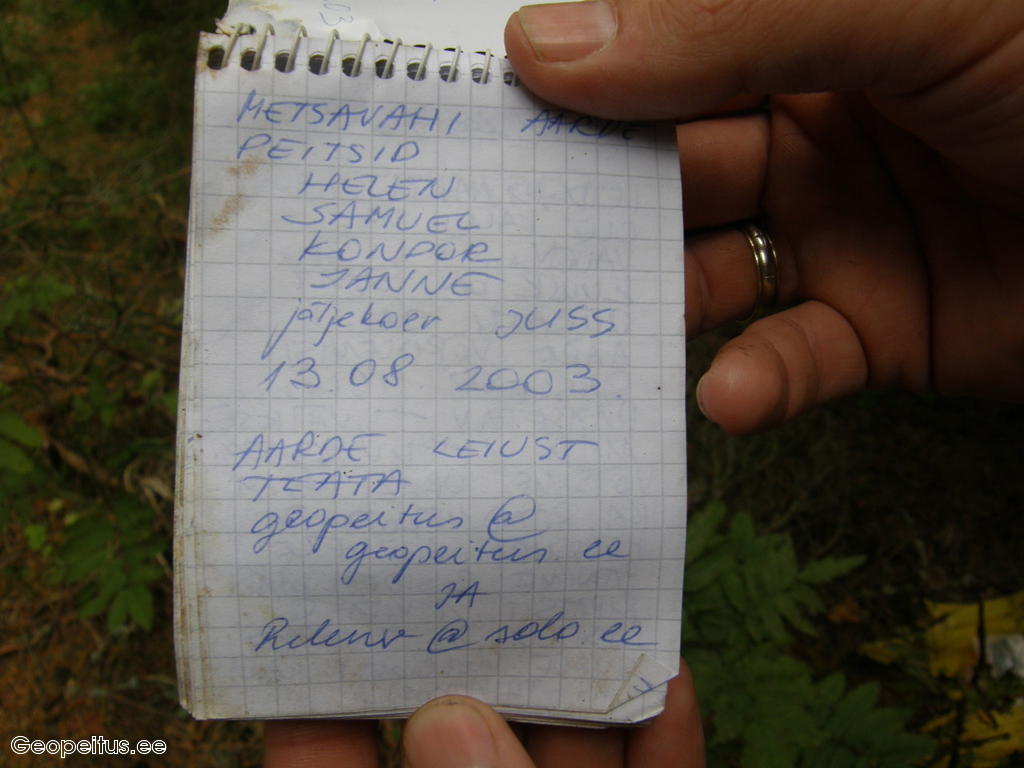 03
METSAVAHI AARDE
PEITSID
HELEN
SAMUEL
KONDOR
JANNE
jäljekoer JUSS
13.08 2003.
AARDE LEIUST
TEATA
geopeitus @
geopeitus.ee
JA
@ solo.ee
Geopeitus.ee